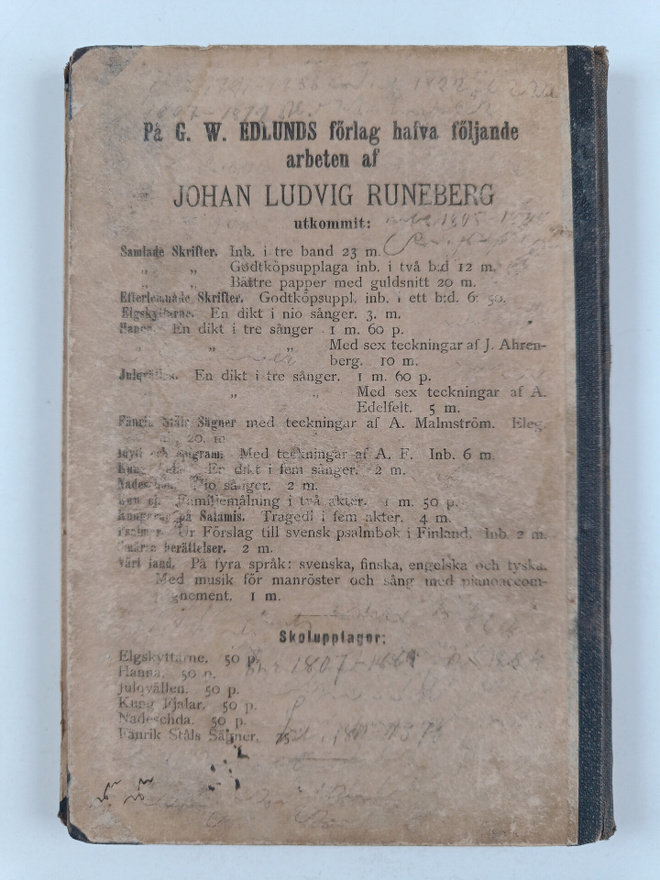 På G. W. EDLUNDS förlag hafva följande
arbeten af
JOHAN LUDVIG RUNEBERG
utkommit:
Samlade Skrifter. Inb. i tre band 23 m.
„ „ Godtköpsupplaga inb. i två b:d 12 m.
„ „ Bättre papper med guldsnitt 20 m.
Efterlemnade Skrifter. Godtköpsuppl. inb. i ett b:d. 6: 50.
Elgskyttarne. En dikt i nio sånger. 3. m.
Hanna. En dikt i tre sånger 1 m. 60 p.
„ „ Med sex teckningar af J. Ahren-
berg. 10 m.
Julqvällen. En dikt i tre sånger. 1 m. 60 p.
„ „ Med sex teckningar af A.
Edelfelt. 5 m.
Fänrik Ståls Sägner med teckningar af A. Malmström. Eleg.
20. m
Idyll och epigram. Med teckningar af A. F. Inb. 6 m.
Kung Fjalar. En dikt i fem sånger. 2 m.
Nadeschda. Nio sånger. 2 m.
Kan ej. Familjemålning i två akter. 1 m. 50 p.
Kungarne på Salamis. Tragedi i fem akter. 4 m.
Psalmer. Ur Förslag till svensk psalmbok i Finland. Inb. 2 m.
Smärre berättelser. 2 m.
Vårt land. På fyra språk: svenska, finska, engelska och tyska.
Med musik för manröster och sång med pianoaccom-
pagnement. 1 m.
Skolupplagor:
Elgskyttarne. 50 p.
Hanna. 50 p.
Julqvällen. 50 p.
Kung Fjalar. 50 p.
Nadeschda. 50 p.
Fänrik Ståls Sägner. 75